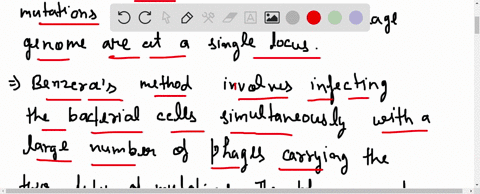 mutations age
genome are at a single locus.
⇒ Benzera's method involves infecting
the bacterial cells simultaneously with a
large number of phages carrying the